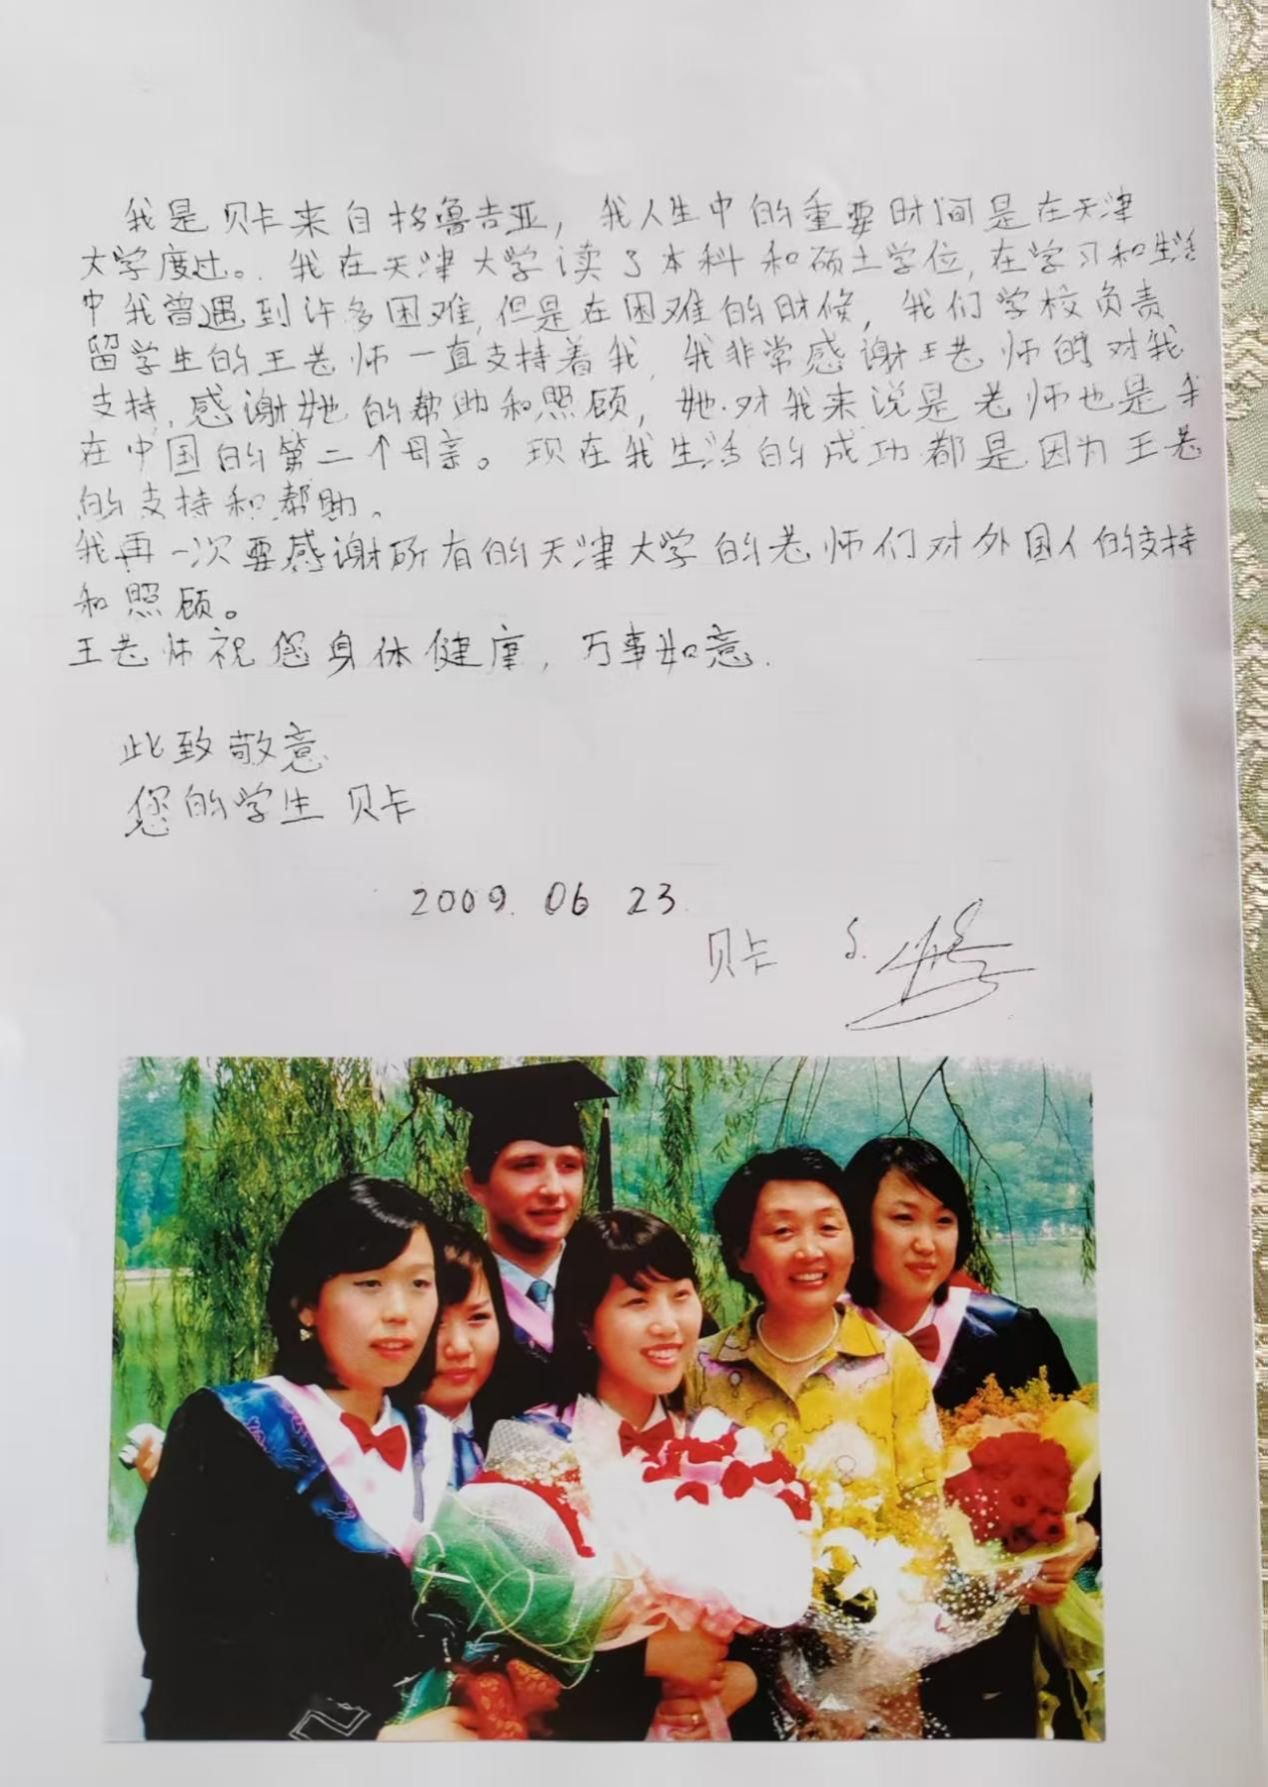 我是贝卡来自格鲁吉亚，我人生中的重要时间是在天津
大学度过。我在天津大学读了本科和硕士学位,在学习和生活
中我曾遇到许多困难,但是在困难的时候，我们学校负责
留学生的王老师一直支持着我,我非常感谢王老师的对我
支持,感谢她的帮助和照顾，她对我来说是老师也是我
在中国的第二个母亲。现在我生活的成功都是因为王老
的支持和帮助。
我再一次要感谢所有的天津大学的老师们对外国人的支持
和照顾。
王老师祝您身体健康，万事如意.
此致敬意
您的学生 贝卡
2009. 06 23.
贝卡